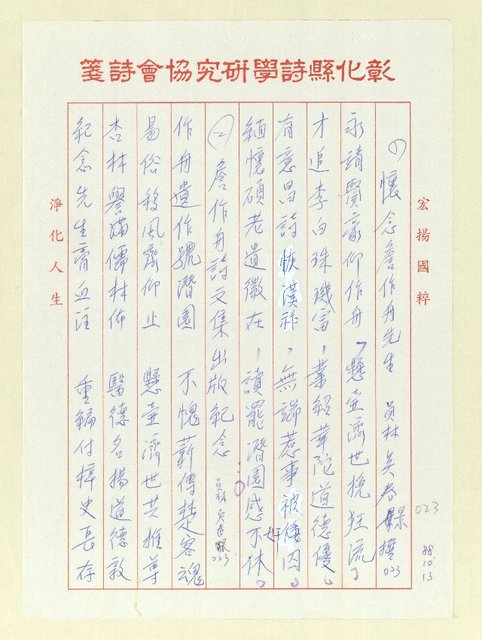 彰化縣詩學研究協會詩箋
宏揚國粹
(1)懷念詹作舟先生 員林 吳春景撰 023
永靖賢豪仰作舟，懸壺濟世挽狂流，
才追李白珠璣富，業紹華陀道德優，
有意昌詩恢漢祚，無端惹事被倭囚，
緬懷碩老遺徽在，讀罷潛園感不休。
(二)詹作舟詩文集出版紀念 員林 吳春景 023
作舟遺作號潛園 不愧薪傳楚客魂
易俗移風齊仰止 懸壺濟世共推尊
杏林譽滿儒林佈 醫德名揚道德敦
紀念先生膏血註 重編付梓史長存
淨化人生
023
88.10.13